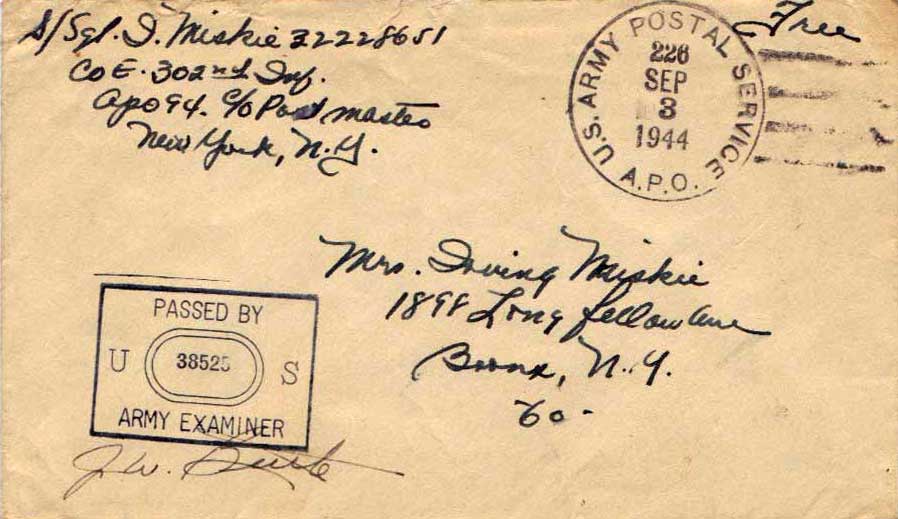 S/Sgt. I. Miskie 32228651
Co E. 302nd Inf.
Apo 94. c/o Postmaster
New York, N.Y.
Free
U.S. ARMY POSTAL SERVICE
226
SEP
3
1944
A.P.O.
Mrs. Irving Miskie
1898 Longfellow Ave
Bronx, N.Y.
60-
PASSED BY
U 38525 S
ARMY EXAMINER
J.W.